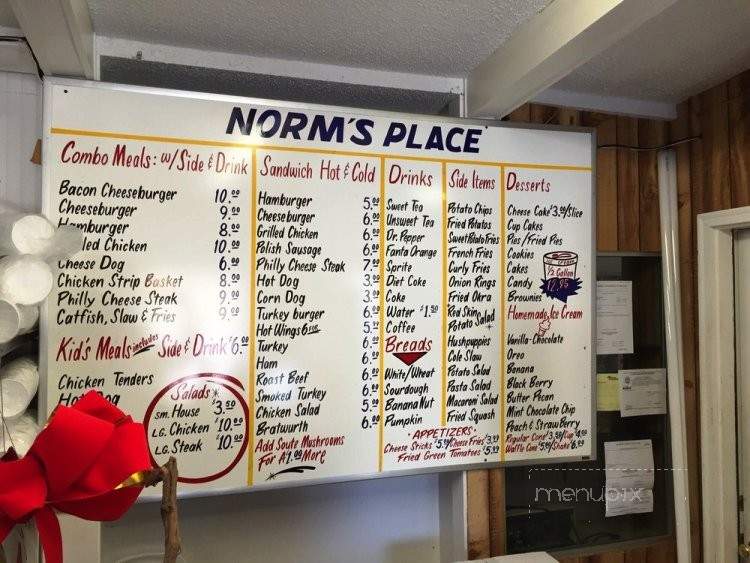 NORM'S PLACE
Combo Meals: w/Side & Drink
Bacon Cheeseburger 10.00
Cheeseburger 9.00
Hamburger 8.00
lled Chicken 10.00
Cheese Dog 6.00
Chicken Strip Basket 8.00
Philly Cheese Steak 9.00
Catfish, Slaw & Fries 9.00
Kid's Meals includes Side & Drink $6.00
Chicken Tenders
Salads
sm. House $3.50
LG. Chicken $10.00
LG. Steak $10.00
Sandwich Hot & Cold
Hamburger 5.00
Cheeseburger 6.00
Grilled Chicken 6.00
Polish Sausage 6.00
Philly Cheese Steak 7.00
Hot Dog 3.00
Corn Dog 3.00
Turkey burger 6.00
Hot Wings 6 FOR 5.00
Turkey 6.00
Ham
Roast Beef
Smoked Turkey
Chicken Salad
Bratwurth 6.00
Add Soute Mushrooms
For A $1.00 More
Drinks
Sweet Tea
Unsweet Tea
Dr. Pepper
Fanta Orange
Sprite
Diet Coke
Coke
Water $1.50
Coffee
Breads
White/Wheat
Sourdough
Banana Nut
Pumpkin
Side Items
Potato Chips
Fried Potatos
Sweet Potato Fries
French Fries
Curly Fries
Onion Rings
Fried Okra
Red Skin Potato Salad
Hushpuppies
Cole Slaw
Potato Salad
Pasta Salad
Macaroni Salad
Fried Squash
APPETIZERS
Cheese Sticks $5.99 Cheese Fries $3.99
Fried Green Tomatoes $5.99
Desserts
Cheese Cake $3.50/Slice
Cup Cakes
Pies/Fried Pies
Cookies
Cakes
Candy
Brownies
1/2 Gallon
12.95
Homemade Ice Cream
Vanilla-Chocolate
Oreo
Banana
Black Berry
Butter Pecan
Mint Chocolate Chip
Peach & Strawberry
Regular Cone
Waffle Cone
menupix